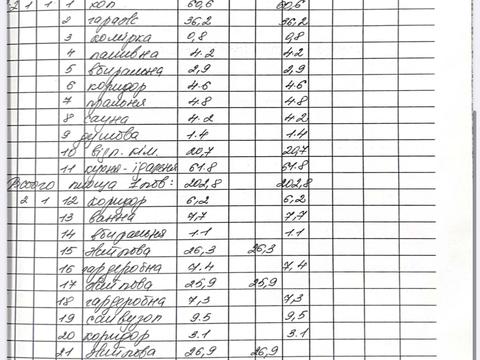 2 1 1 1 хол 60,6 60,6
2 гараж 36,2 36,2
3 комірка 0,8 0,8
4 паливна 4.2 4.2
5 вбиральня 2,9 2,9
6 коридор 4.6 4.6
7 пральня 4.8 4.8
8 сауна 4.2 4.2
9 душова 1.4 1.4
10 відп. кім. 20,7 20,7
11 кухня-їдальня 61.8 61.8
Всього площа 1 пов: 202,8 202,8
2 1 12 коридор 6,2 6,2
13 ванна 7,7 7,7
14 вбиральня 1.1 1.1
15 житлова 26,3 26,3
16 гардеробна 7.4 7,4
17 житлова 25,9 25,9
18 гардеробна 7,3 7,3
19 санвузол 9.5 9,5
20 коридор 3.1 3.1
21 житлова 26,9 26,9